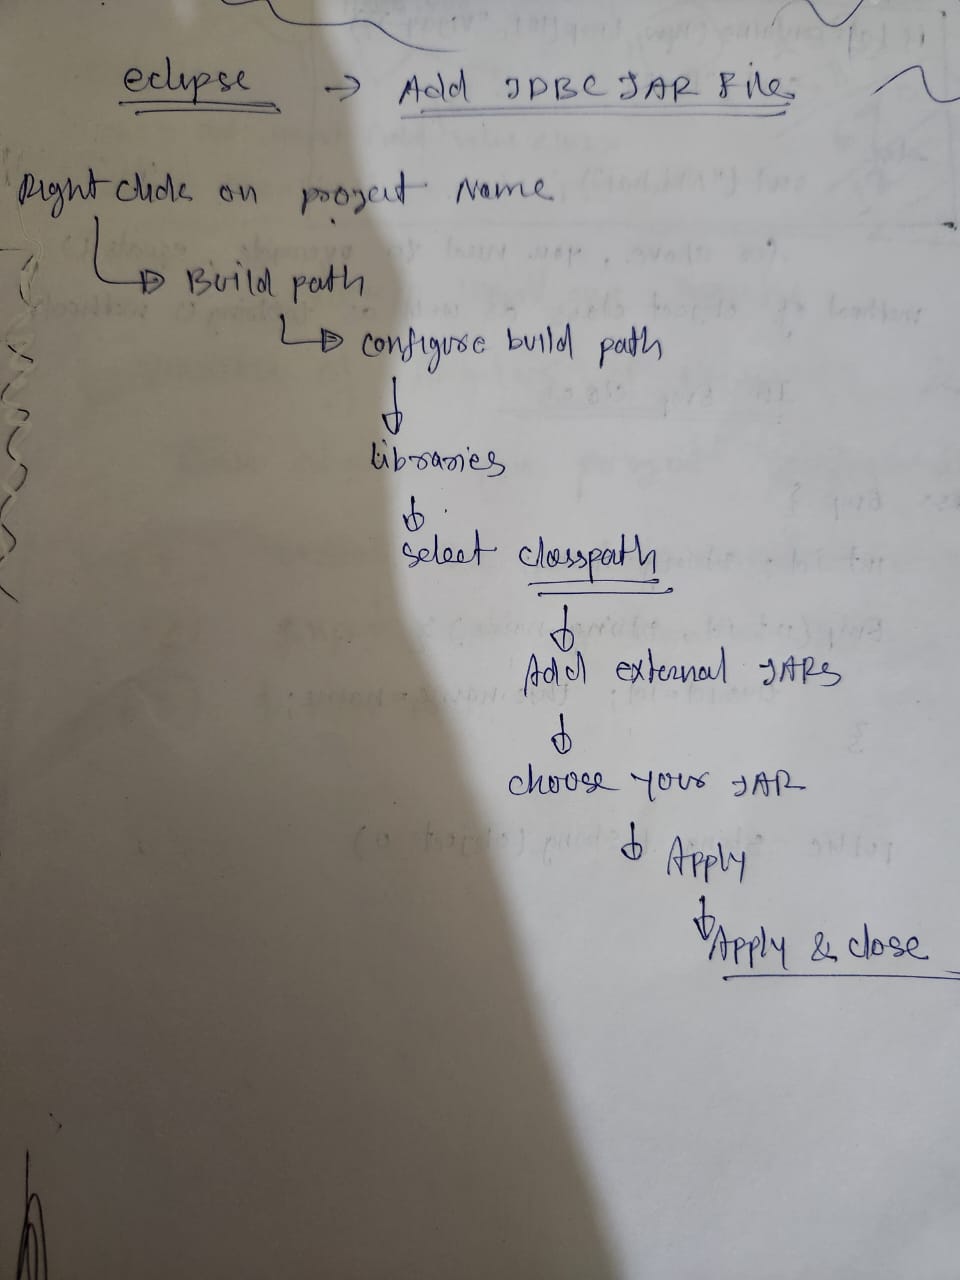 eclipse → Add JDBC JAR File
Right click on project Name
Build path
configure build path
libraries
select classpath
Add external JARs
choose your JAR
Apply
Apply & close